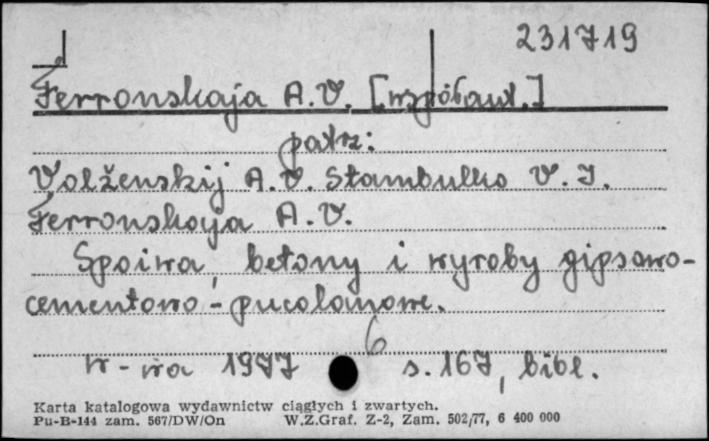 231719
Ferronskaja A.V. [współaut.]
patrz:
Volženskij A.V. Stambulko V.I.
Ferronskaja A.V.
Spoiwa, betony i wyroby gipsowo-
cementowo-pucolanowe.
6
W-wa 1977 s. 167, bibl.
Karta katalogowa wydawnictw ciągłych i zwartych.
Pu-B-144 zam. 567/DW/On W.Z.Graf. Z-2, Zam. 502/77, 6 400 000